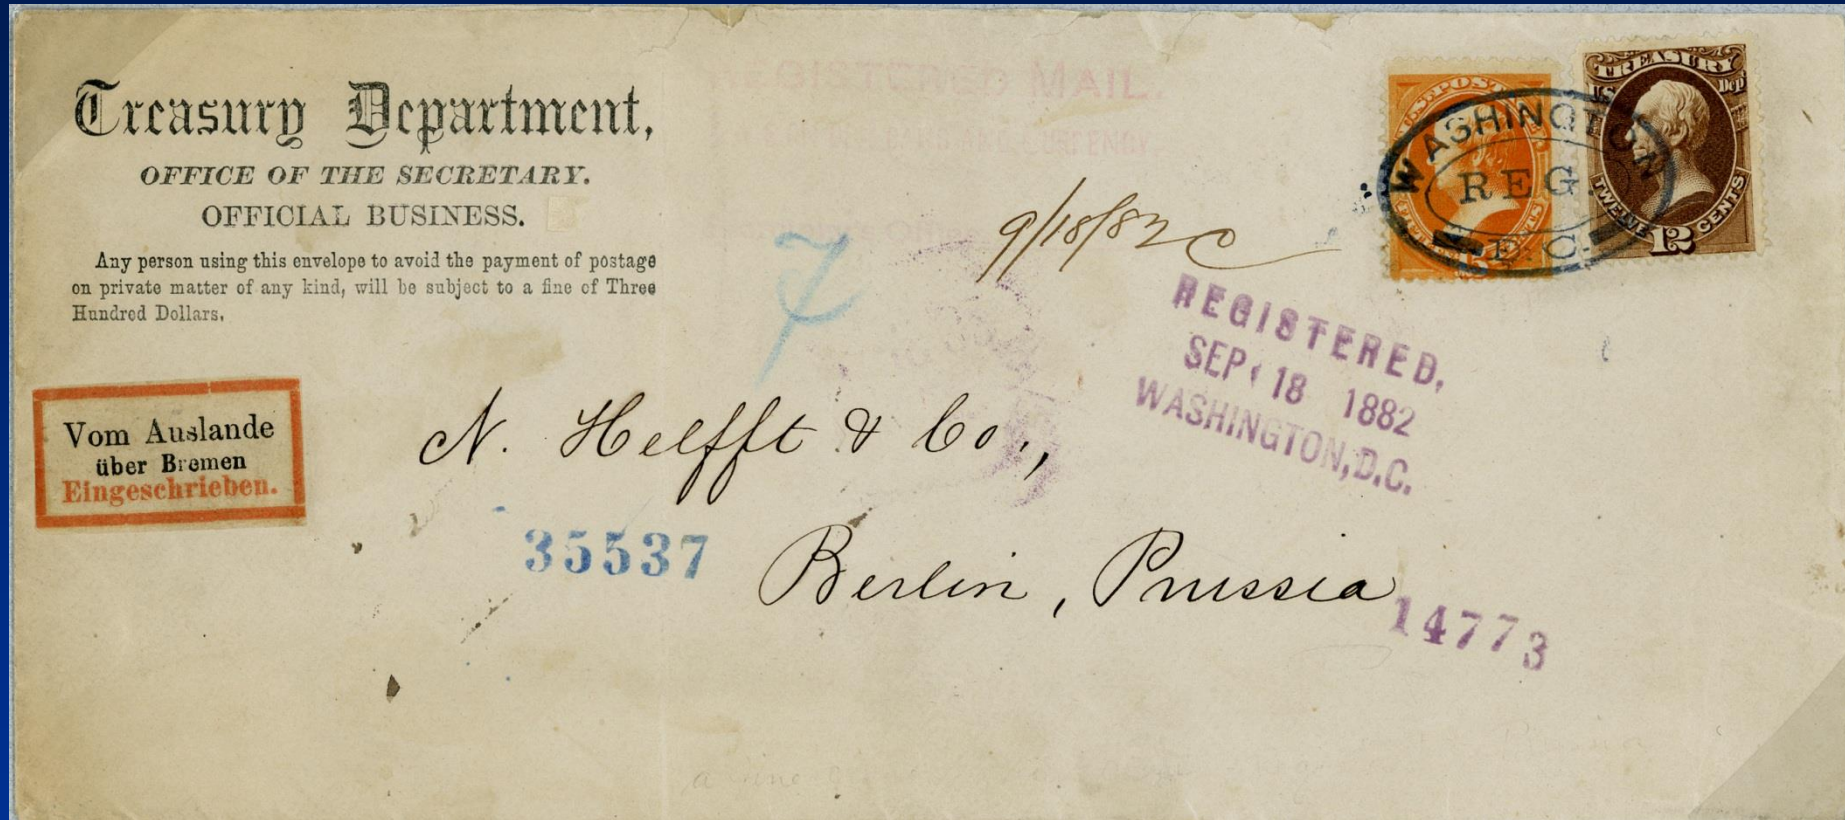 Treasury Department,
OFFICE OF THE SECRETARY.
OFFICIAL BUSINESS.
Any person using this envelope to avoid the payment of postage
on private matter of any kind, will be subject to a fine of Three
Hundred Dollars.
REGISTERED MAIL.
9/18/82
7
U.S. POSTAGE
TREASURY
U.S. Dep
TWELVE 12 CENTS
WASHINGTON
REG.
D.C.
REGISTERED,
SEP 18 1882
WASHINGTON, D.C.
Vom Auslande
über Bremen
Eingeschrieben.
N. Helfft & Co.,
35537
Berlin, Prussia
14773